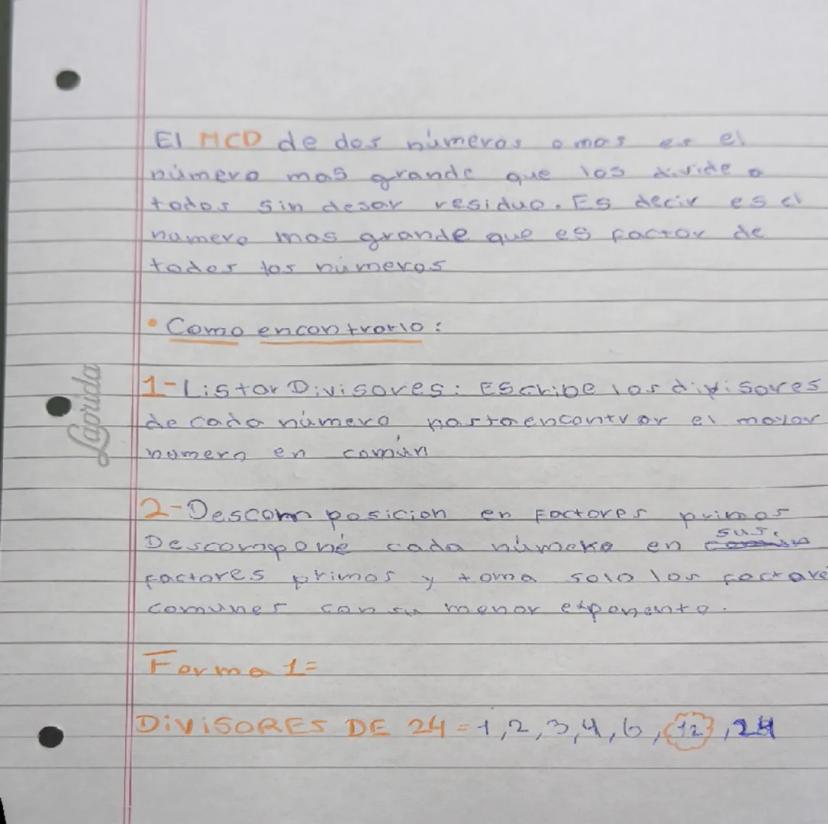 El MCD de dos números o mas es el
número mas grande que los divide a
todos sin dejar residuo. Es decir es el
numero mas grande que es factor de
todos los números
• Como encontrarlo:
1-Listar Divisores: Escribe los divisores
de cada número hasta encontrar el mayor
numero en común
2-Descomposicion en Factores primos
Descomponé cada número en sus
factores primos y toma solo los factore
comunes con su menor exponente.
Forma 1=
DiViSORES DE 24 = 1, 2, 3, 4, 6, 12, 24
Laprida